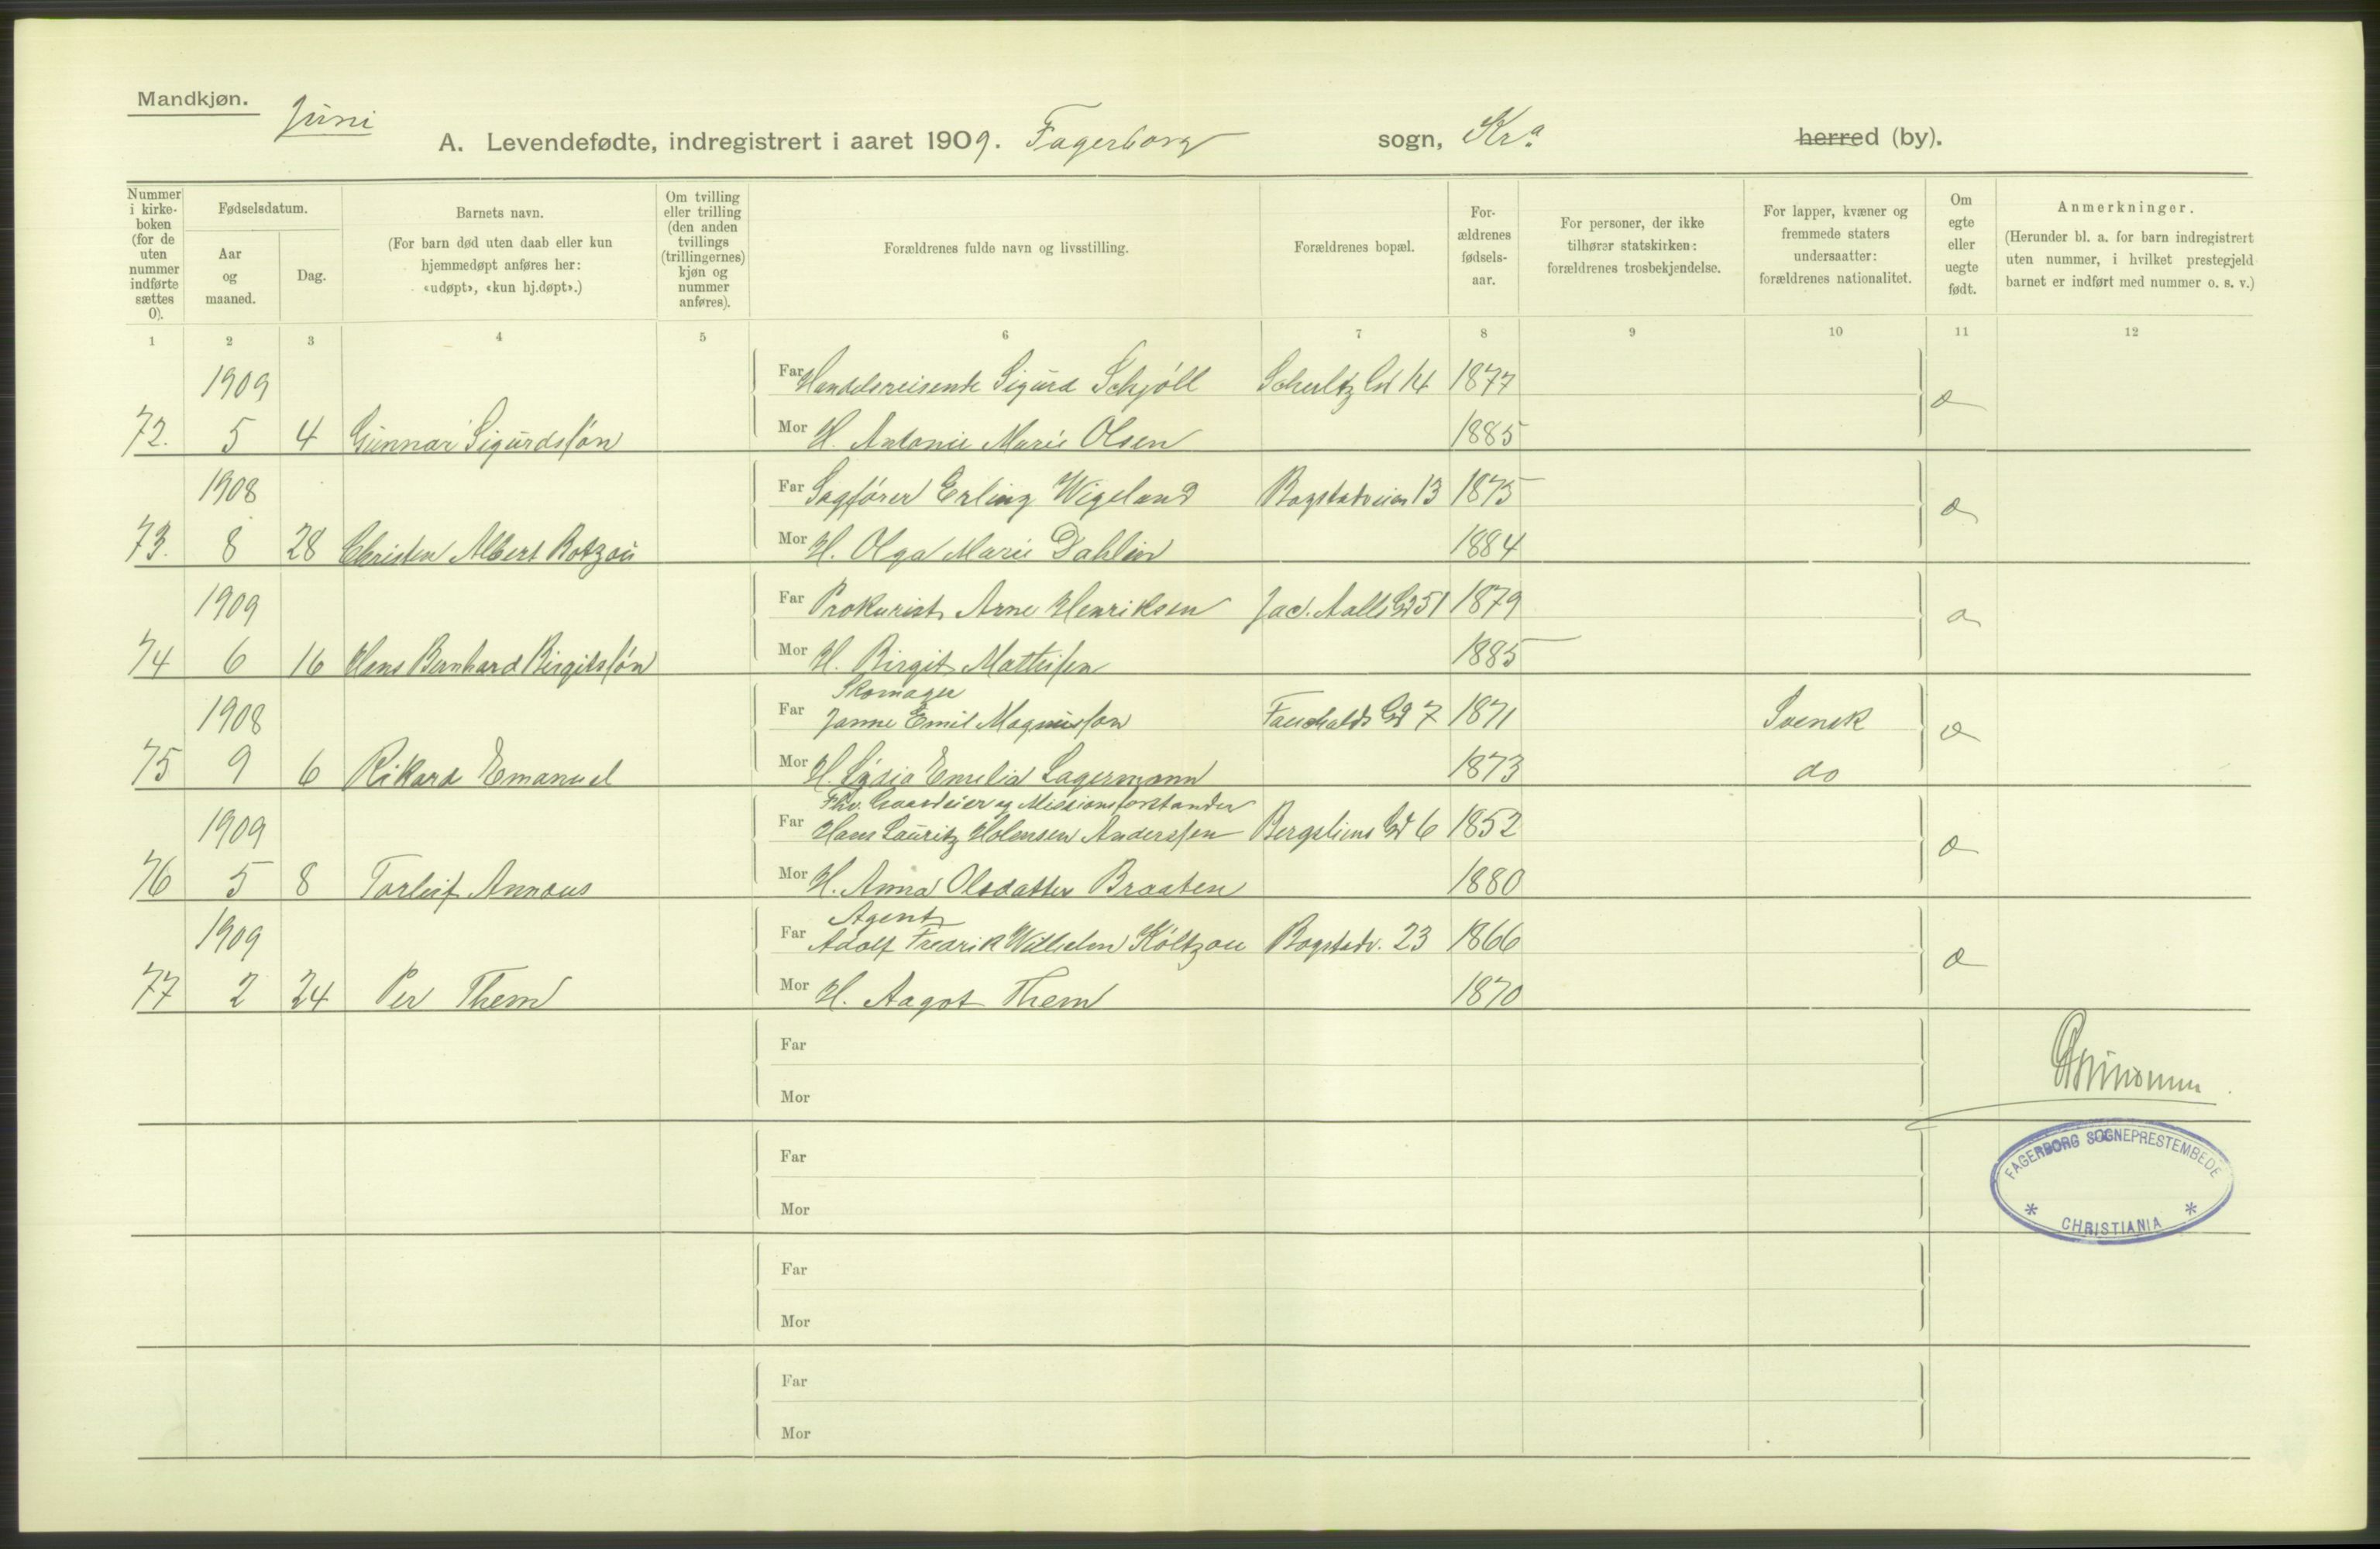 Mandkjøn.
Juni
A. Levendefødte, indregistrert i aaret 1909. Fagerborg sogn, Kr.a herred (by).
Nummer i kirkeboken (for de uten nummer indførte sættes 0).
Fødselsdatum.
Aar og maaned.
Dag.
Barnets navn.
(For barn død uten daab eller kun hjemmedøpt anføres her: «udøpt», «kun hj.døpt».)
Om tvilling eller trilling (den anden tvillings (trillingernes) kjøn og nummer anføres).
Forældrenes fulde navn og livsstilling.
Forældrenes bopæl.
Forældrenes fødselsaar.
For personer, der ikke tilhører statskirken: forældrenes trosbekjendelse.
For lapper, kvæner og fremmede staters undersaatter: forældrenes nationalitet.
Om egte eller uegte født.
Anmerkninger.
(Herunder bl. a. for barn indregistrert uten nummer, i hvilket prestegjeld barnet er indført med nummer o. s. v.)
1 2 3 4 5 6 7 8 9 10 11 12
1909 Far Handelsreisende Sigurd Schjöll Schultz Gd 14 1877
72. 5 4 Gunnar Sigurdsøn Mor H. Antonie Marie Olsen 1885
1908 Far Sagfører Erling Wigeland Bogstadveien 13 1875
73. 8 28 Christen Albert Botzou Mor H. Olga Marie Dahlin 1884
1909 Far Prokurist Arne Henriksen Jac. Aalls Gd 51 1879
74 6 16 Hans Bernhard Birgitsøn Mor H. Birgit Mathisen 1885
Skomager
1908 Far Janne Emil Magnusson Fauchalds Gd 7 1871 Svensk
75 9 6 Rikard Emanuel Mor H. Emelia Lagermann 1873 do
Fhv. Gaardeier og Missionsforstander
1909 Far Hans Lauritz Holmsen Anderssen Bergsliens Gd 6 1852
76 5 8 Torleif Annæus Mor H. Anna Olsdatter Braaten 1880
Agent
1909 Far Adolf Fredrik Wilhelm Költzou Bogstadv. 23 1866
77 2 24 Per Them Mor H. Aagot Them 1870
Far
Mor
Far
Mor
FAGERBORG SOGNEPRESTEMBEDE
* CHRISTIANIA *
Far
Mor
Far
Mor